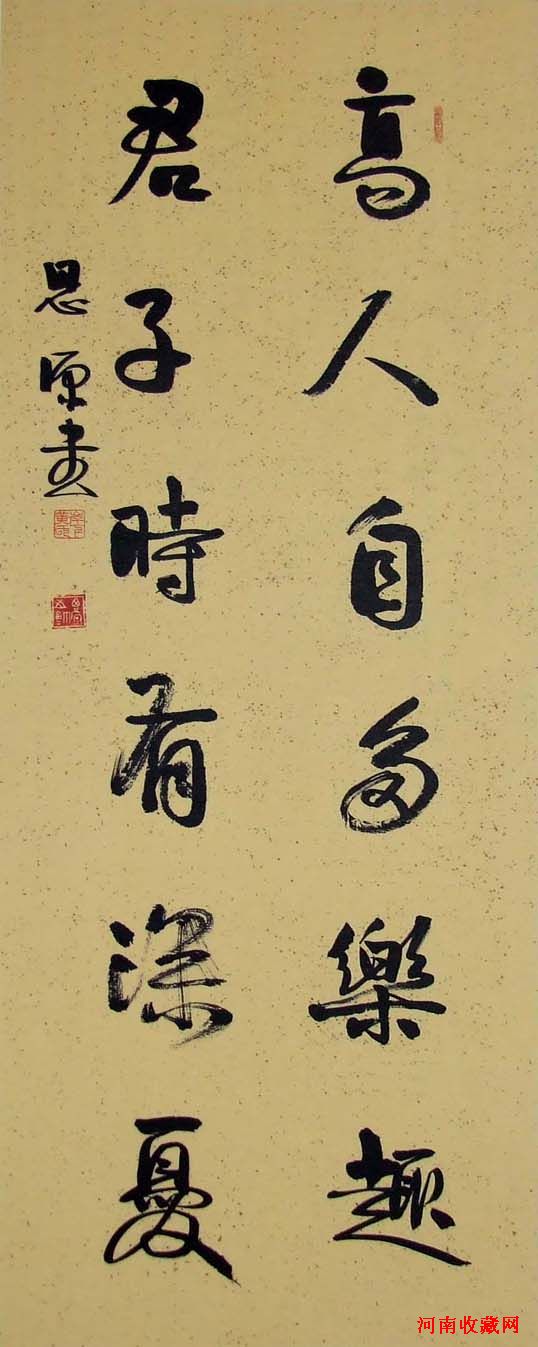 高人自多樂趣
君子時有深憂
思源書
河南收藏网